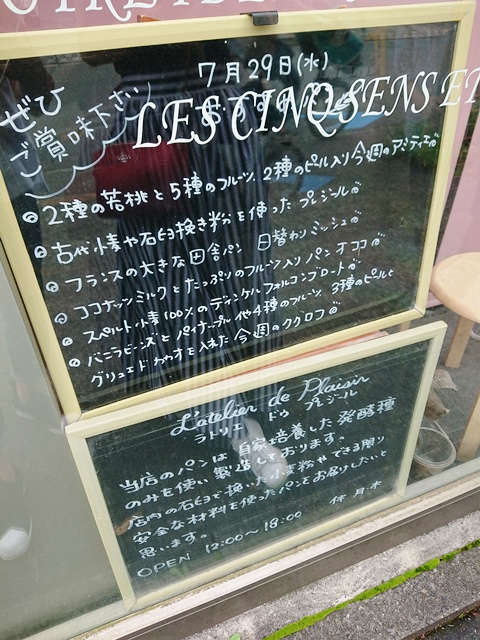 7月29日(水)
ぜひ
ご賞味下さい
LES CINQ SENS ET
◎2種の若桃と5種のフルーツ、2種のピール入り今週のアミティエ
◎古代小麦や石臼挽き粉を使ったプレジール
◎フランスの大きな田舎パン 日替わりミッシュ
◎ココナッツミルクとたっぷりのフルーツ入りパンナココ
◎スペルト小麦100%のディンケルフォルコンブロート
◎バニラビーンズとパイナップルや4種のフルーツ、3種のピールと
グリュエドカカオを入れた今週のクグロフ
L'atelier de Plaisir
ラトリエ ドゥ プレジール
当店のパンは自家培養した発酵種
のみを使い製造しております。
店内の石臼で挽いた小麦粉やできる限り
安全な材料を使ったパンをお届けしたいと
思います。
休 月木
OPEN 12:00〜18:00